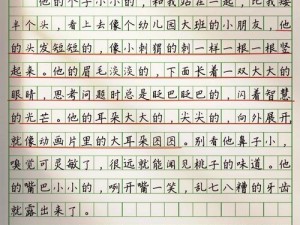 他的个子小小的，和我站在一起，比我矮
半个头，看上去像个幼儿园大班的小朋友，他
的头发短短的，像小刺猬的刺一样一根一根竖
起来。他的眉毛淡淡的，下面长着一双大大的
眼睛，思考问题时总是眨巴眨巴的，闪着智慧
的光芒。他的耳朵大大的，尖尖的，向外展开，
就像动画片里的大耳朵图图。别看他鼻子小，
嗅觉可灵敏了，很远就能闻见桃子的味道。他
的嘴巴小小的，咧开嘴一笑，乱七八糟的牙齿
就露出来了。